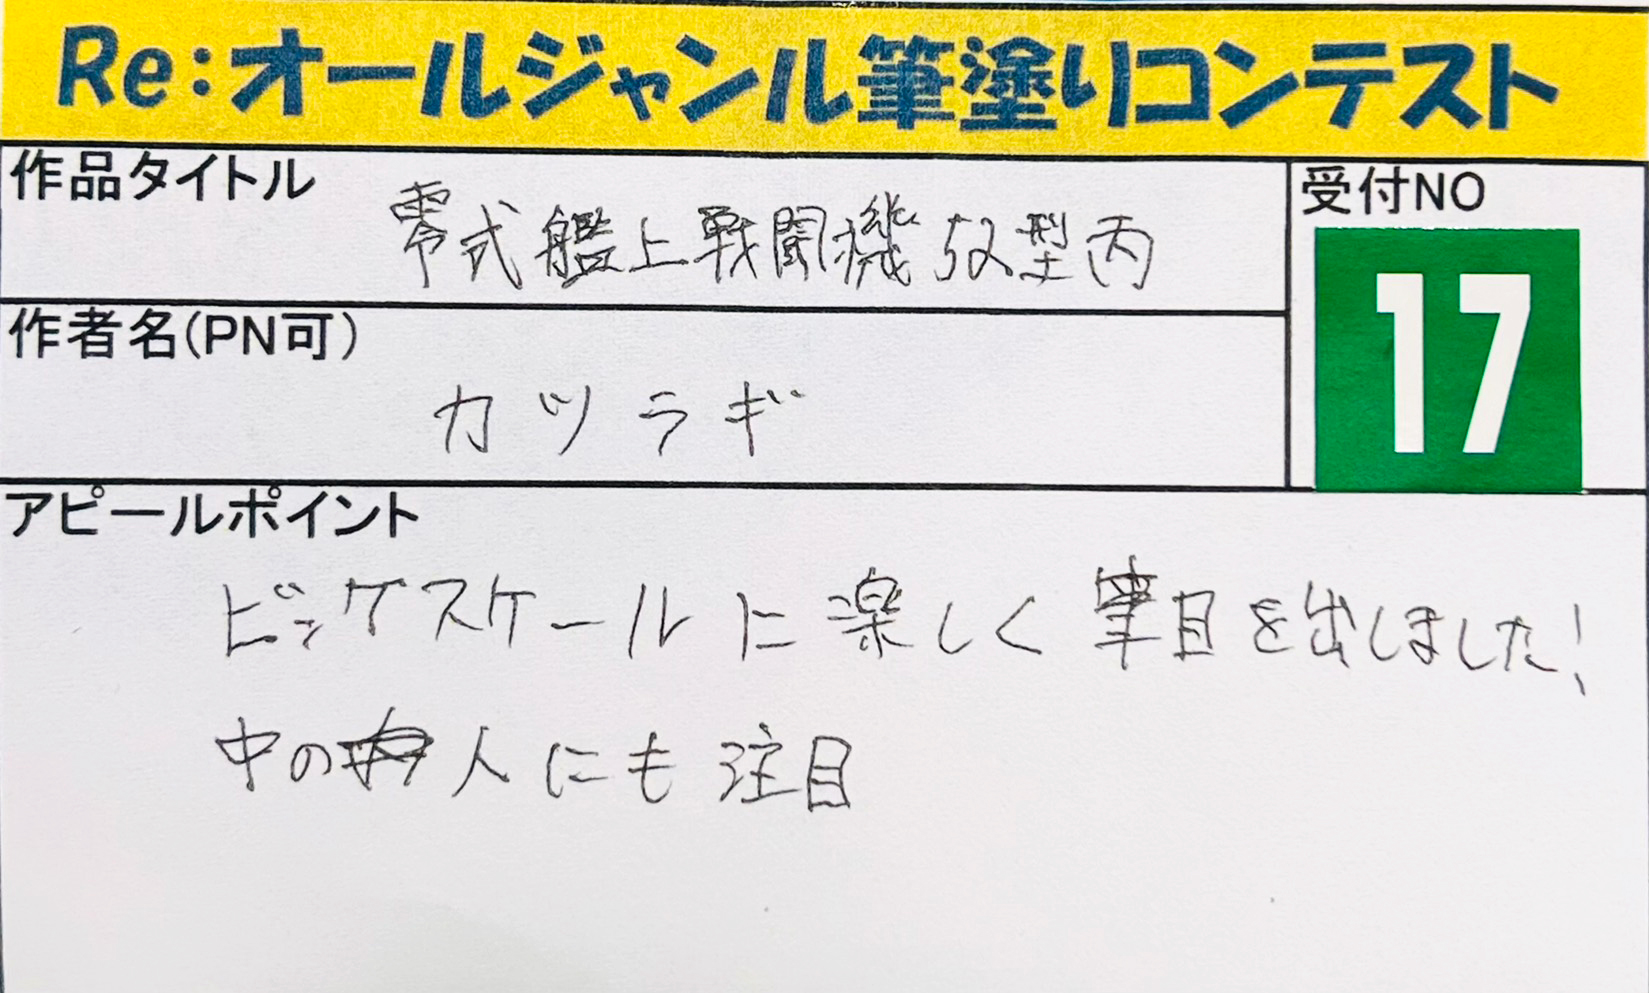 Re:オールジャンル筆塗りコンテスト
作品タイトル
零式艦上戦闘機52型丙
受付NO
17
作者名(PN可)
カツラギ
アピールポイント
ビッグスケールに楽しく筆目を出しました!
中の人にも注目